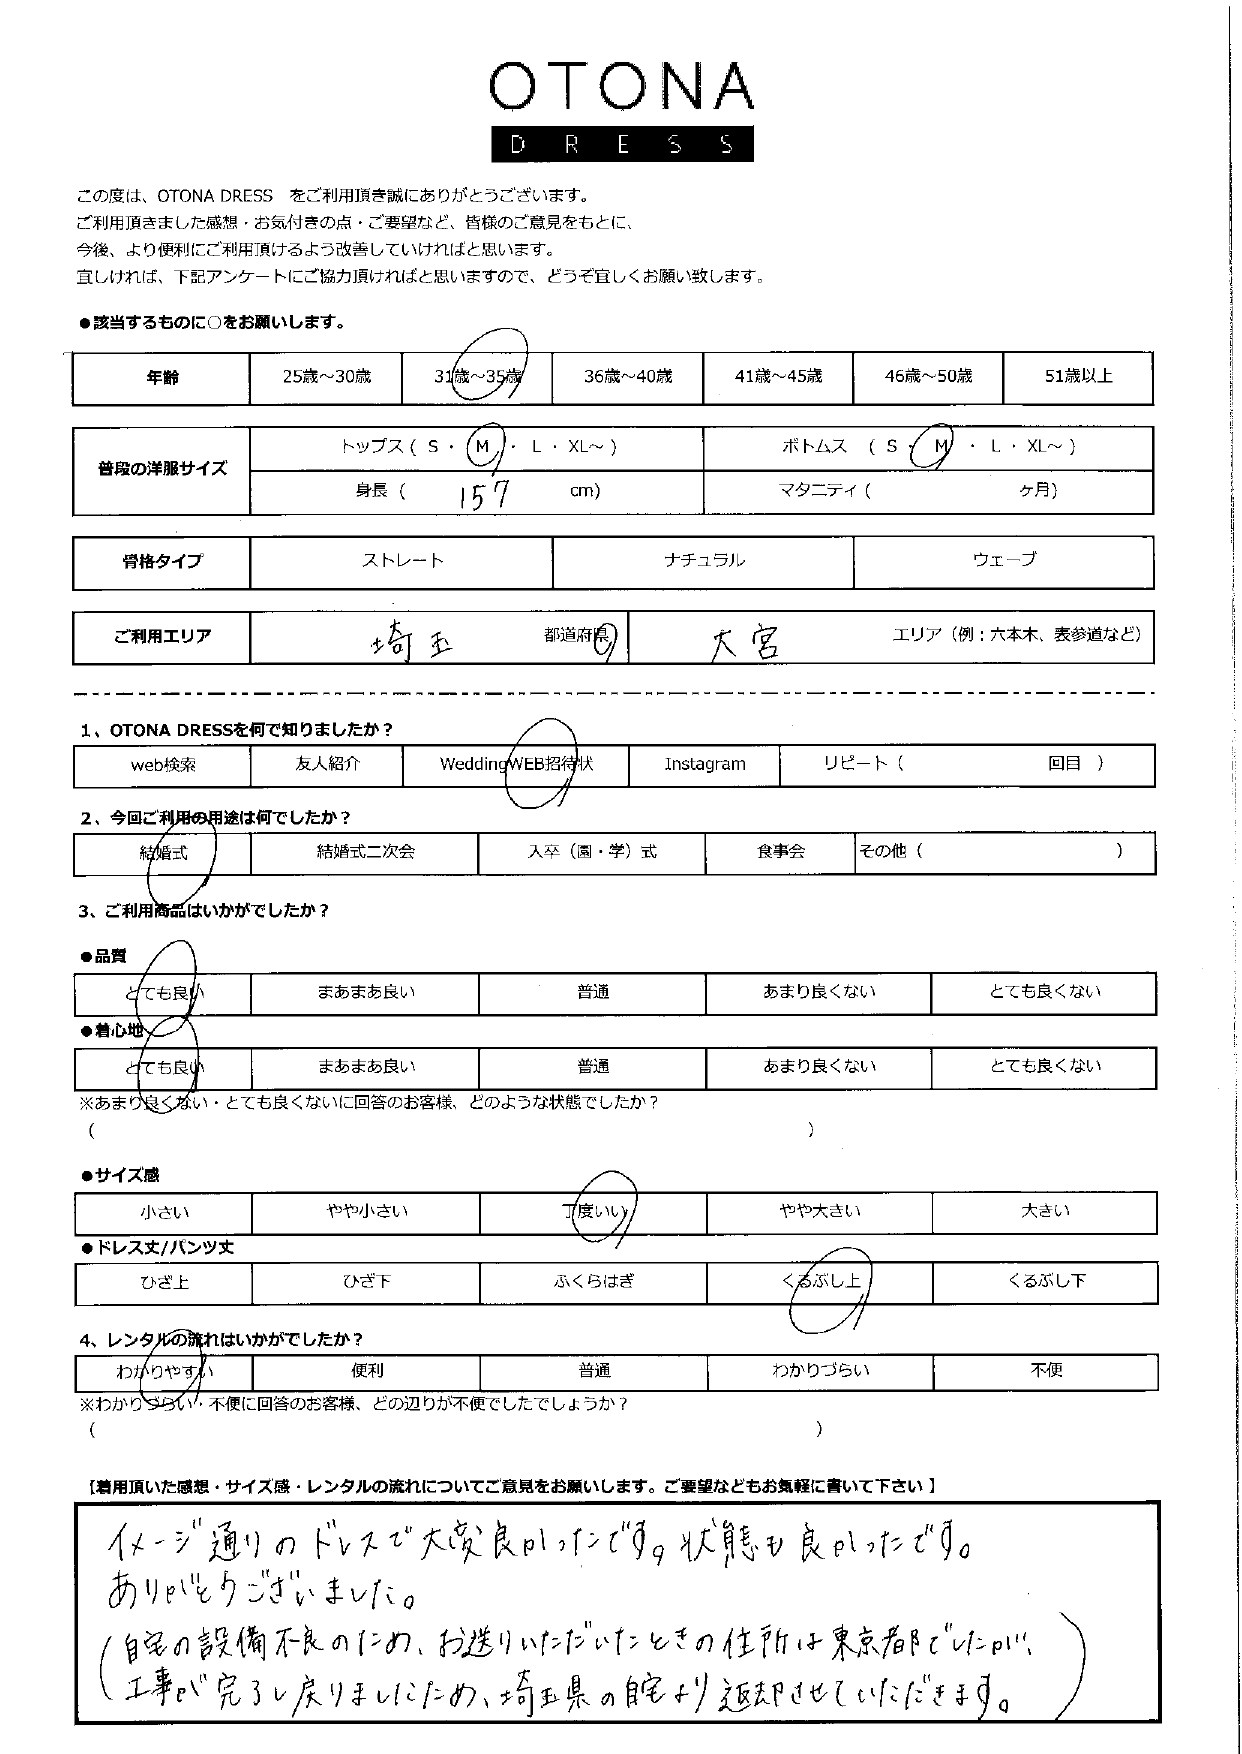 OTONA
DRESS
この度は、OTONA DRESS をご利用頂き誠にありがとうございます。
ご利用頂きました感想・お気付きの点・ご要望など、皆様のご意見をもとに、
今後、より便利にご利用頂けるよう改善していければと思います。
宜しければ、下記アンケートにご協力頂ければと思いますので、どうぞ宜しくお願い致します。
●該当するものに○をお願いします。
年齢 25歳～30歳 31歳～35歳 36歳～40歳 41歳～45歳 46歳～50歳 51歳以上
普段の洋服サイズ トップス ( S ・ M ・ L ・ XL～ ) ボトムス ( S ・ M ・ L ・ XL～ )
身長 ( 157 cm) マタニティ ( ヶ月)
骨格タイプ ストレート ナチュラル ウェーブ
ご利用エリア 埼玉 都道府県 大宮 エリア（例：六本木、表参道など）
1、OTONA DRESSを何で知りましたか？
web検索 友人紹介 WeddingWEB招待状 Instagram リピート ( 回目 )
2、今回ご利用の用途は何でしたか？
結婚式 結婚式二次会 入卒（園・学）式 食事会 その他 ( )
3、ご利用商品はいかがでしたか？
●品質
とても良い まあまあ良い 普通 あまり良くない とても良くない
●着心地
とても良い まあまあ良い 普通 あまり良くない とても良くない
※あまり良くない・とても良くないに回答のお客様、どのような状態でしたか？
( )
●サイズ感
小さい やや小さい 丁度いい やや大きい 大きい
●ドレス丈/パンツ丈
ひざ上 ひざ下 ふくらはぎ くるぶし上 くるぶし下
4、レンタルの流れはいかがでしたか？
わかりやすい 便利 普通 わかりづらい 不便
※わかりづらい・不便に回答のお客様、どの辺りが不便でしたでしょうか？
( )
【着用頂いた感想・サイズ感・レンタルの流れについてご意見をお願いします。ご要望などもお気軽に書いて下さい 】
イメージ通りのドレスで大変良かったです。状態も良かったです。
ありがとうございました。
(自宅の設備不良のため、お送りいただいたときの住所は東京都でしたが、
工事が完了し戻りましたため、埼玉県の自宅より返却させていただきます。)